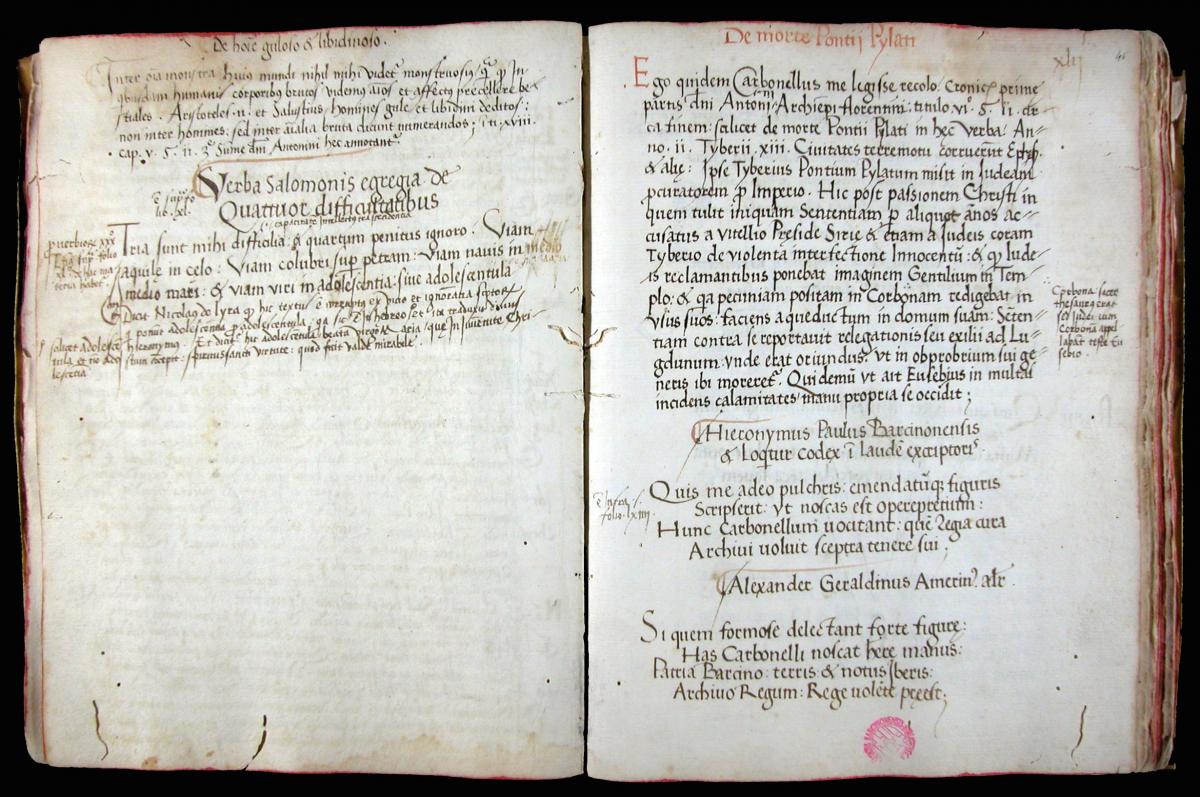 De hoīe guloso & libidinoso.
Inter oīa monstra huiꝰ mundi nihil mihi videt monstruosiꝰ q̃ ꝙ In
quibusdam humanis corporibꝰ brutoꝝ videmꝰ aīos et affectꝰ precellere be
stiales. Aristoteles .n. et Salustius homines gule et libidini deditos:
non inter homines: sed inter aīalia bruta dicunt numerandos: ī ti. xviii.
cap. v. §. ii. Sūme dn̄i Antonini hec annotant᷑
Verba Salomonis egregia de
Quattuor difficultatibus
ē supra fo
lio. xl.
capacitate intellectus trascendentia
Tria sunt mihi difficilia: & quartum penitus ignoro. Viam
aquile in celo: Viam colubri sup petram: Viam nauis in medio
medio maris: & viam viri in adolescentia: siue adolescentula
puerbioꝝ xxx°
Dicit Nicolaꝰ de lyra ꝙ hic textus ē corruptꝰ ex vicio et ignorātia scptoꝝ
ponūt adolescentia p adolescentula. qa sic ē in hebreo et ita transtulit diuus
hieronymꝰ. Et dicit᷑ hic adolescentula beata virgo Maria que in iuuentute Chri-
stum concepit: spiritussancti virtute: quod fuit valde mirabile.
scilicet adolescē
tula et nō ado
lescētia
De morte Pontii Pylati
xlii
Ego quidem Carbonellus me legisse recolo. Cronicꝝ prime
partis dn̄i Antonini Archiepi florentini: titulo. vi°. §. ii. cir
ca finem: scilicet de morte Pontii Pylati in hec verba. An-
no. ii. Tyberii. xiii. Ciuitates terremotu corruerūt Ephesꝰ
& alie: Ipse Tyberius Pontium Pylatum misit in Iudeam
pcuratorem p Imperio. Hic post passionem Christi in
quem tulit iniquam Sententiam p aliquot ānos ac-
cusatus a vitellio Preside Sirie & etiam a Iudeis coram
Tyberio de violenta interfectione Innocentū: & ꝙ Iude-
is reclamantibus ponebat imaginem Gentilium in Tem-
plo: & qa pecuniam positam in Corbonam redigebat in
vsus suos: faciens aqueductum in domum suam: Seten-
tiam contra se reportauit relegationis seu exilii ad Lu-
gdunum: vnde erat oriundus: vt in obprobrium sui ge-
neris ibi moreret᷑. Qui demū vt ait Eusebius in multas
incidens calamitates manu propria se occidit;
Corbona sacre
thesaurꝰ erat
Corbona appel
labat̃ teste Eu
sebio.
Hieronymus Paulus Barcinonensis
& Loqtur codex ī laudē excriptoris
Quis me adeo pulchris: emendatūqꝫ figuris
Scripserit: vt noscas est operepretium:
Hunc Carbonellum uocitant: quē Regia cura
Archiui uoluit sceptra tenere sui;
ē infra.
folio. lxiiii.
Alexander Geraldinus Amerinꝰ.
Si quem formose delectant forte figure:
Has Carbonelli noscat habere manus:
Patria Barcino: terris & notus Iberis:
Archiuo Regum: Rege volēte preest;